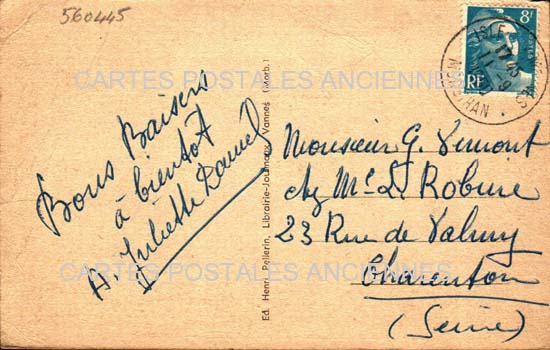 560445
Bons Baisers
à bientôt
A. Juliette Daniel
Ed. Henri Pellerin, Librairie-Journaux, Vannes (Morb.)
Monsieur G.
chez Mr L. Robine
23 Rue de Valmy
Charenton
(Seine)
8F
POSTES
RF
ISLE
17
MORBIHAN
CARTES POSTALES ANCIENNES
CARTES POSTALES ANCIENNES